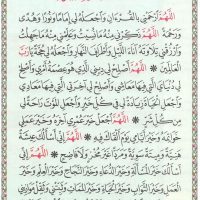 اللَّهُمَّ ارْحَمْنِي بِالْقُرْءَانِ وَاجْعَلْهُ لِي إِمَامًا وَنُورًا وَهُدًى
وَرَحْمَةً اللَّهُمَّ ذَكِّرْنِي مِنْهُ مَا نَسِيتُ وَعَلِّمْنِي مِنْهُ مَا جَهِلْتُ
وَارْزُقْنِي تِلَاوَتَهُ آنَاءَ اللَّيْلِ وَأَطْرَافَ النَّهَارِ وَاجْعَلْهُ لِي حُجَّةً يَا رَبَّ
الْعَالَمِينَ * اللَّهُمَّ أَصْلِحْ لِي دِينِي الَّذِي هُوَ عِصْمَةُ أَمْرِي وَأَصْلِحْ
لِي دُنْيَايَ الَّتِي فِيهَا مَعَاشِي وَأَصْلِحْ لِي آخِرَتِي الَّتِي فِيهَا مَعَادِي
وَاجْعَلِ الْحَيَاةَ زِيَادَةً لِي فِي كُلِّ خَيْرٍ وَاجْعَلِ الْمَوْتَ رَاحَةً لِي
مِنْ كُلِّ شَرٍّ * اللَّهُمَّ اجْعَلْ خَيْرَ عُمْرِي آخِرَهُ وَخَيْرَ عَمَلِي
خَوَاتِمَهُ وَخَيْرَ أَيَّامِي يَوْمَ أَلْقَاكَ فِيهِ * اللَّهُمَّ إِنِّي أَسْأَلُكَ عِيشَةً
هَنِيَّةً وَمِيتَةً سَوِيَّةً وَمَرَدًّا غَيْرَ مُخْزٍ وَلَا فَاضِحٍ * اللَّهُمَّ إِنِّي
أَسْأَلُكَ خَيْرَ الْمَسْأَلَةِ وَخَيْرَ الدُّعَاءِ وَخَيْرَ النَّجَاحِ وَخَيْرَ الْعِلْمِ وَخَيْرَ
الْعَمَلِ وَخَيْرَ الثَّوَابِ وَخَيْرَ الْحَيَاةِ وَخَيْرَ الْمَمَاتِ وَثَبِّتْنِي وَثَقِّلْ مَوَازِينِي